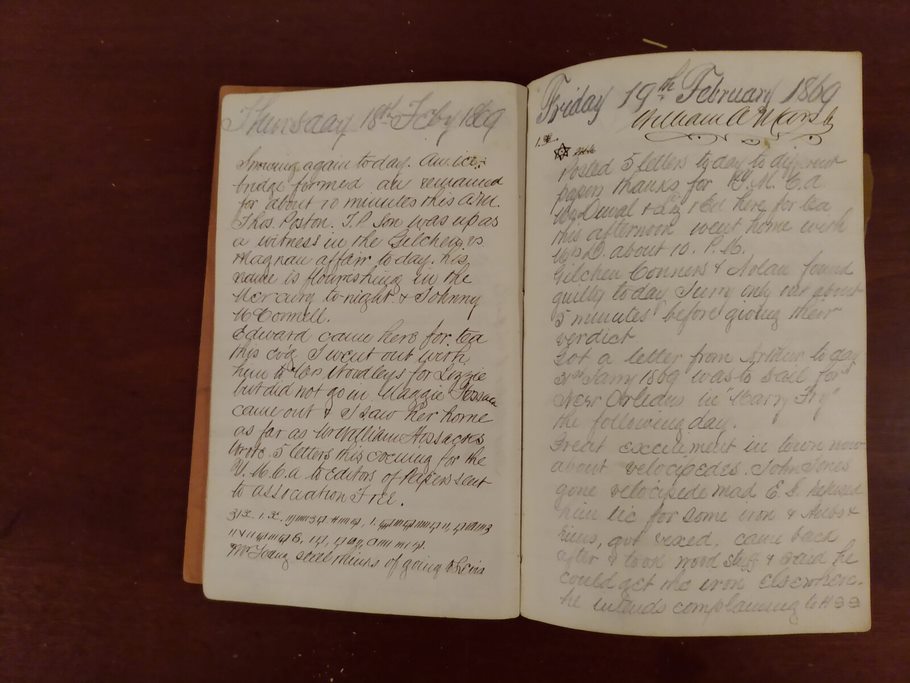 Thursday 18th Feby 1869
Snowing again to day. An ice
bridge formed and remained
for about 10 minutes this a.m.
Thos. Poston. T.P. Son was up as
a witness in the Gilchen vs
Magnan affair to day. his
name is flourishing in the
Mercury to-night & Johnny
McCornell.
Edward came here for tea
this evg I went out with
him to Mrs Woodleys for Lizzie
but did not go in Maggie
came out & I saw her home
as far as Mr William Hossacks
Wrote 5 letters this evening for the
Y.M.C.A. to Editors of Papers sent
to association Free.
Mr Young still thinks of going
Friday 19th February 1869
William A Marsh
Posted 5 letters to day to different
papers thanks for Y.M.C.A
here for tea
this afternoon went home with
Mrs D. about 10. P.M.
Gilchen Conners & Nolan found
guilty to day Jury only out about
5 minutes before giving their
verdict
Got a letter from Arthur to day
31st Jany 1869 was to sail for
New Orleans in "Harry
the following day.
Great excitement in town now
about velocipedes. John Jones
gone velocipede mad E.G. refused
him lic for some iron &
came back
after & took wood stuff & said he
could get the iron elsewhere.
he intends complaining to